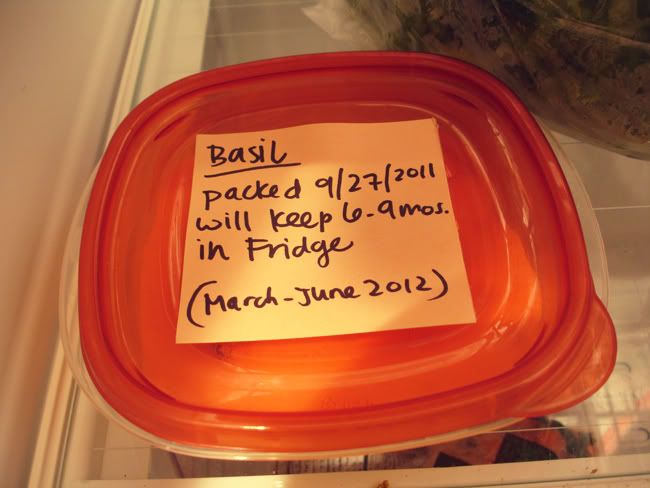 Basil
packed 9/27/2011
will keep 6-9 mos.
in Fridge
(March-June 2012)